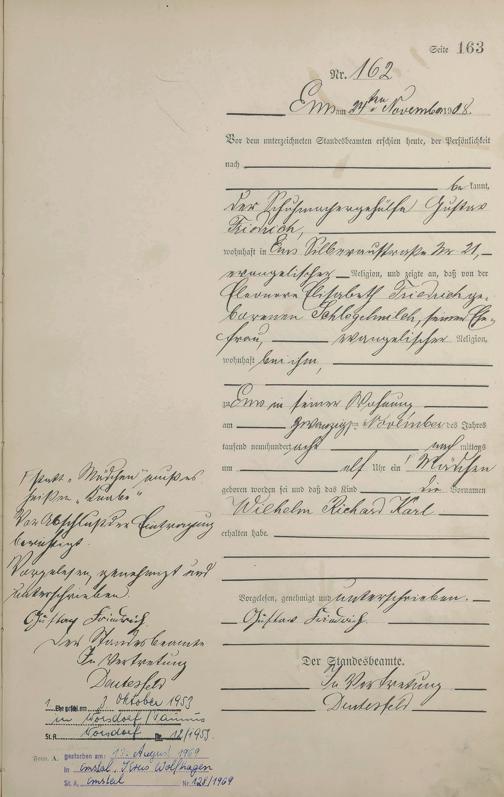 Seite 163
Nr. 162
Ems am 24ten November 1908.
Vor dem unterzeichneten Standesbeamten erschien heute, der Persönlichkeit
nach
bekannt,
der Schuhmachergehülfe Gustav
Friedrich,
wohnhaft in Ems Silberaustraße Nr 21,
evangelischer Religion, und zeigte an, daß von der
Eleonore Elisabeth Friedrich ge-
borenen, seiner Ehe-
frau, evangelischer Religion,
wohnhaft bei ihm,
zu Ems in seiner Wohnung
am zwanzigsten November des Jahres
tausend neunhundert acht nach mittags
um elf Uhr ein Mädchen
geboren worden sei und daß das Kind die Vornamen
Wilhelm Richard Karl
erhalten habe.
Vorgelesen, genehmigt und unterschrieben.
Gustav Friedrich.
Der Standesbeamte.
In Vertretung
statt "Mädchen" muß es
heißen "Knabe"
Vor Abschluß der Eintragung
berichtigt.
Vorgelesen, genehmigt und
unterschrieben.
Gustav Friedrich.
Der Standesbeamte
In Vertretung
1. Ehe geschl. am 3. Oktober 1953
in /Taunus
St. A. Nr. 12/1953.
Form. A.
gestorben am: August 1969
in Emstal, Kreis Wolfhagen
St. A. Emstal Nr 128/1969